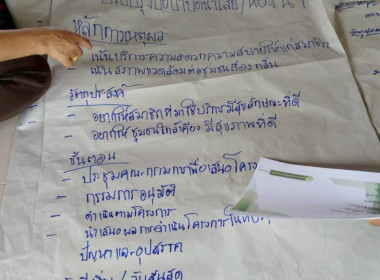 หลักการเหตุผล
- เน้นบริการความสะดวกความสบายให้แก่สมาชิก
- เน้นสภาพแวดล้อมต่อชุมชนเรื่องกลิ่น
วัตถุประสงค์
- อยากให้สมาชิกที่มาใช้บริการมีสุขลักษณะที่ดี
- อยากให้ชุมชนใกล้เคียง มีสุขภาพที่ดี
ขั้นตอน
- ประชุมคณะกรรมการเพื่อเสนอโครง
- กรรมการอนุมัติ
- ดำเนินตามโครงการ
- นำเสนอผลการดำเนินโครงการในที่ป
ปัญหาและอุปสรรค